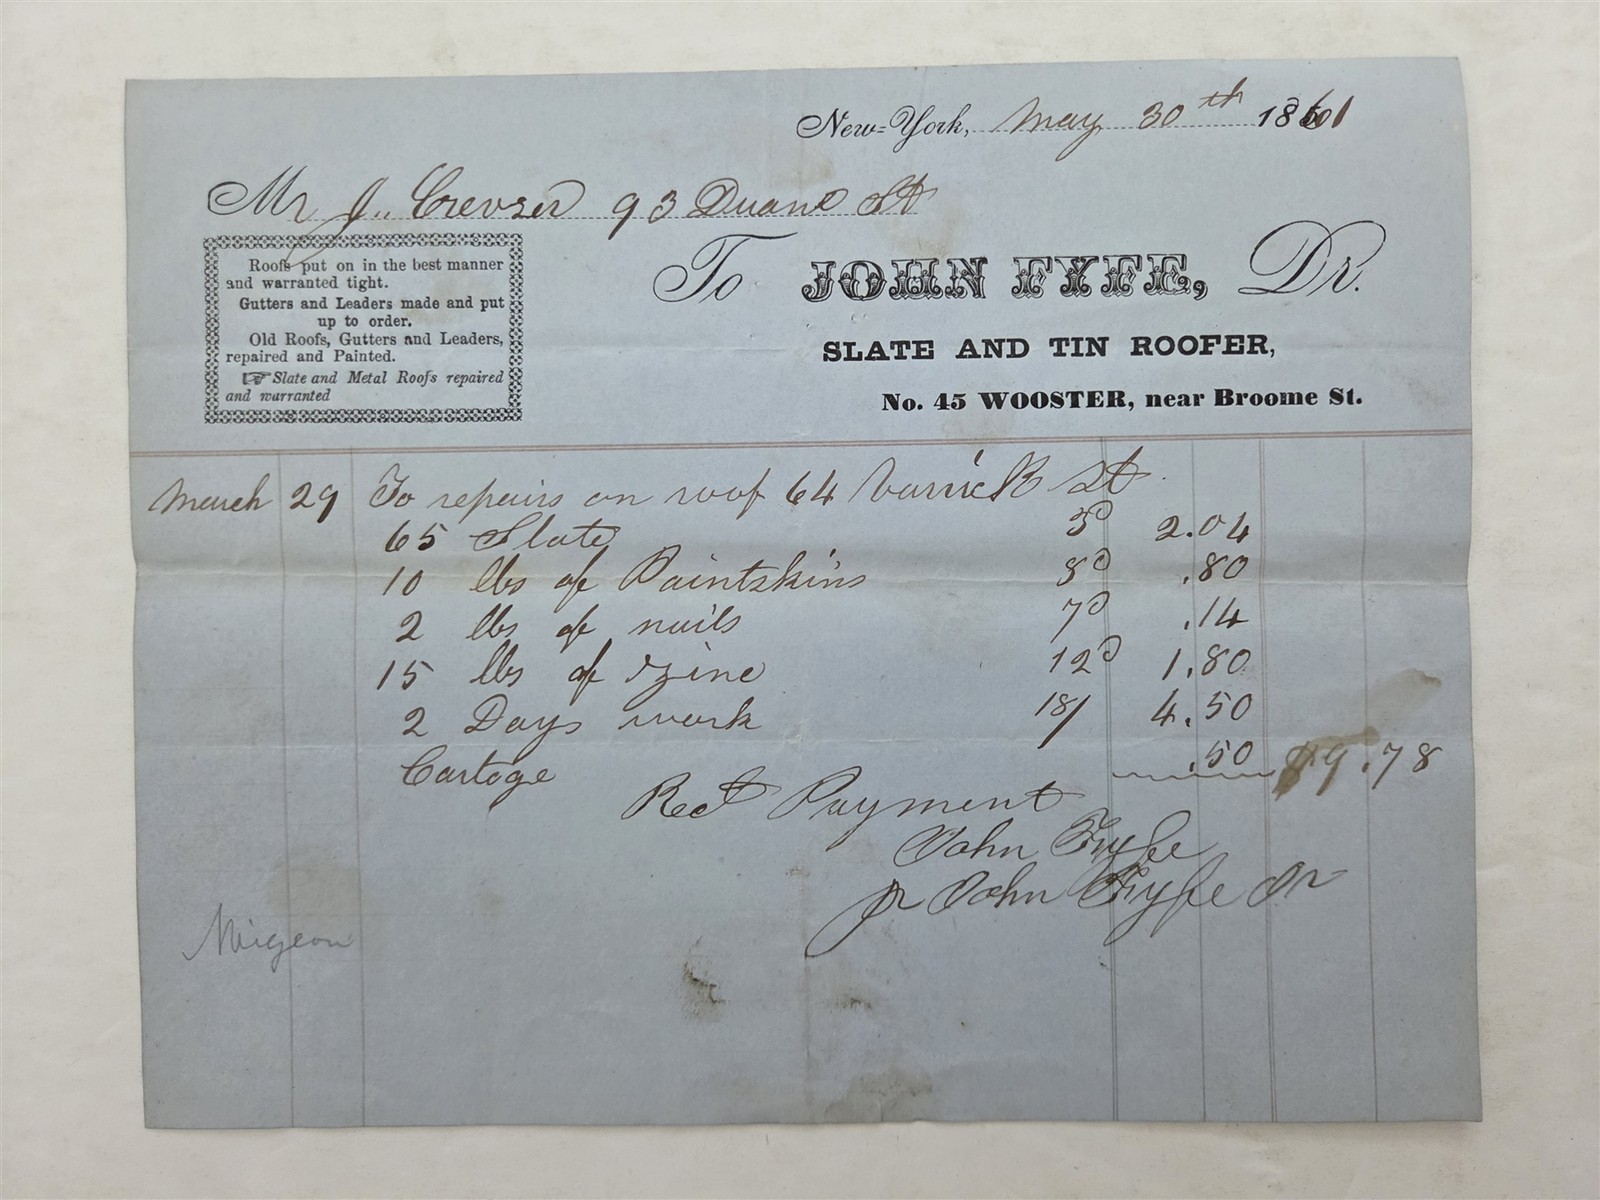 New-York, May 30th 1861
Mr J. Crevser 93 Duane St
Roofs put on in the best manner
and warranted tight.
Gutters and Leaders made and put
up to order.
Old Roofs, Gutters and Leaders,
repaired and Painted.
☞ Slate and Metal Roofs repaired
and warranted
To JOHN FYFE, Dr.
SLATE AND TIN ROOFER,
No. 45 WOOSTER, near Broome St.
March 29 To repairs on roof 64 Varrick St
65 Slate 3d 2.04
10 lbs of Paintskins 8d .80
2 lbs of nails 7d .14
15 lbs of zinc 12d 1.80
2 Days work 18/ 4.50
Cartage .50 $9.78
Rect Payment
John Fyfe
pr John Fyfe Jr
Migeon